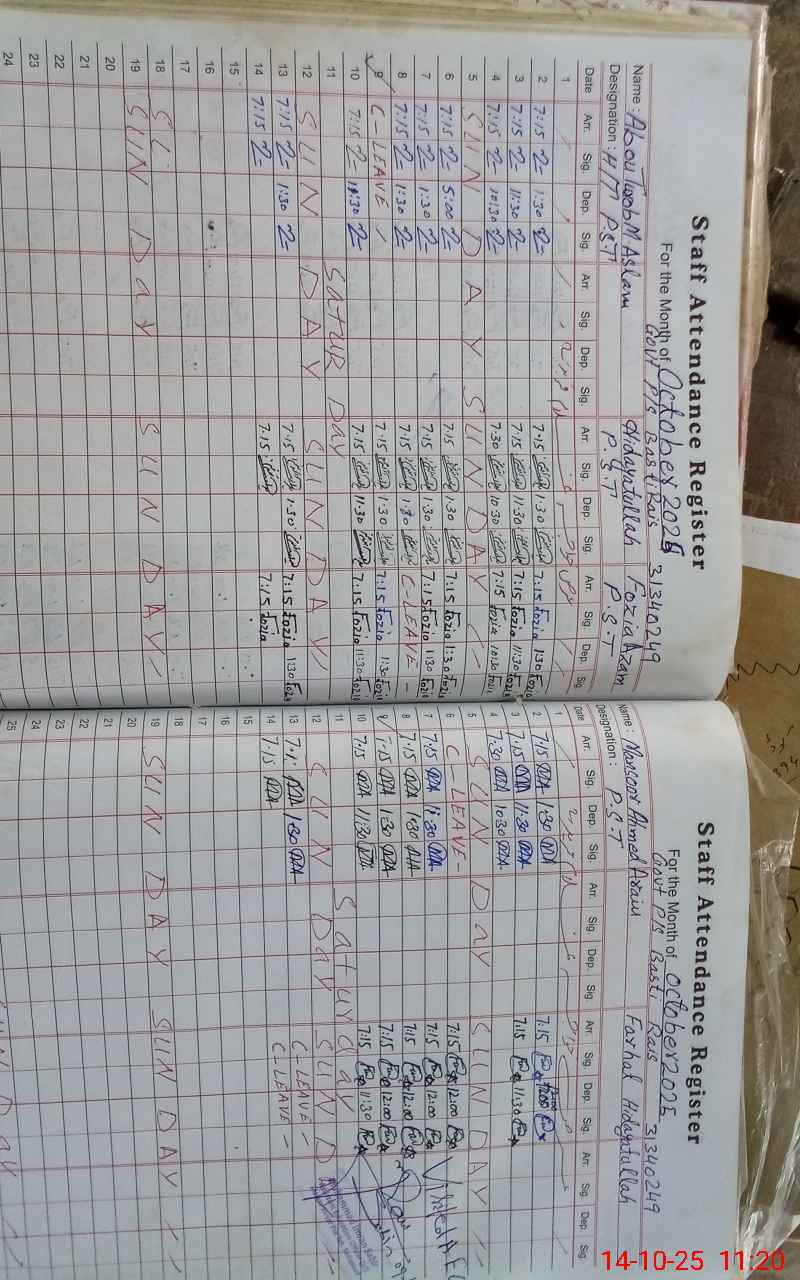 Staff Attendance Register
For the Month of October 2025
Govt P/s Basti Rais 31340249
Name : Aboutwob M Aslam Hidayatullah Fozia Azam
Designation : H M P.S.T P.S.T P.S.T
Date Arr. Sig. Dep. Sig. Arr. Sig. Dep. Sig. Arr. Sig. Dep. Sig. Arr. Sig. Dep. Sig
1
2 7:15 1:30 7·15 1·30 7:15 Fozia 1:30 Fozia
3 7:15 11:30 7·15 11:30 7:15 Fozia 11:30 Fozia
4 7:15 10:30 7·30 10·30 7:15 Fozia 10:30 Fozia
5 SUNDAY SUNDAY
6 7:15 5:00 7·15 1·30 7:15 Fozia 1:30 Fozia
7 7:15 1:30 7·15 1:30 7:15 Fozia 1:30 Fozia
8 7:15 1:30 7·15 1·30 C-LEAVE -
9 C-LEAVE 7·15 1·30 7:15 Fozia 1:30 Fozia
10 7:15 11:30 7·15 11:30 7:15 Fozia 11:30 Fozia
11 Satur Day
12 SUN DAY SUNDAY
13 7:15 1:30 7·15 1·30 7:15 Fozia 1:30 Fozia
14 7:15 7·15 7:15 Fozia
15
16
17
18
19 SUN Day SUN DAY
20
21
22
23
24
Staff Attendance Register
For the Month of october 2025
Govt P/s Basti Rais 31340249
Name : Mansoor Ahmed Azam Farhal Hidayatullah
Designation : P.S.T
Date Arr. Sig. Dep. Sig. Arr. Sig. Dep. Sig. Arr. Sig. Dep. Sig. Arr. Sig. Dep Sig.
1
2 7:15 1:30 7:15 12:00
3 7:15 11:30 7:15 11:30
4 7:30 10:30
5 SUN Day SUNDAY
6 C-LEAVE- 7:15 12:00
7 7:15 1:30 7:15 12:00
8 7·15 1·30 7:15 12:00
9 7·15 1:30 7:15 12:00
10 7:15 11:30 7:15 11:30
11 Saturday
12 SUN Day SUND
13 1:30 C-LEAVE -
14 7·15 C-LEAVE -
15
16
17
18
19 SUN DAY SUN DAY
20
21
22
23
24
25
14-10-25 11:20